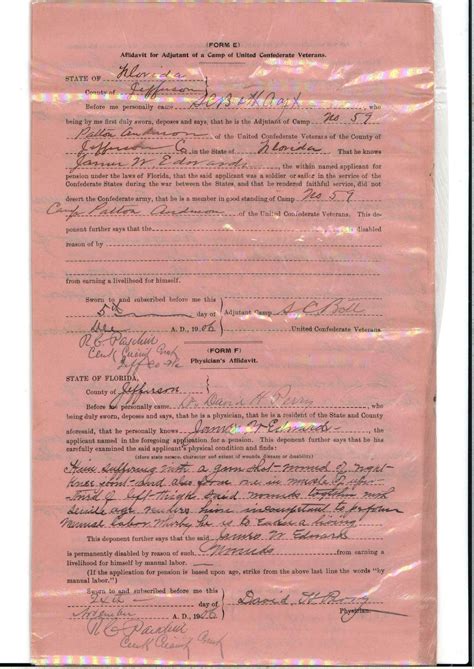 (FORM E)
Affidavit for Adjutant of a Camp of United Confederate Veterans.
STATE OF Florida
County of Jefferson
Before me personally came S C Bott, who
being by me first duly sworn, deposes and says, that he is the Adjutant of Camp No 59
Patton Anderson of the United Confederate Veterans of the County of
Jefferson Co, in the State of Florida That he knows
James W Edwards the within named applicant for
pension under the laws of Florida, that the said applicant was a soldier or sailor in the service of the
Confederate States during the war between the States, and that he rendered faithful service, did not
desert the Confederate army, that he is a member in good standing of Camp No 59
Camp Patton Anderson of the United Confederate Veterans. This de-
ponent further says that the disabled
reason of by
from earning a livelihood for himself.
Sworn to and subscribed before me this
5th day of Adjutant Camp, S. C. Bott
Dec A. D., 1906 United Confederate Veterans.
Jeff Co Fla
(FORM F)
Physician's Affidavit.
STATE OF FLORIDA,
County of Jefferson
Before me personally came Dr David H , who
being duly sworn, deposes and says, that he is a physician, that he is a resident of the State and County
aforesaid, that he personally knows James W Edwards the
the applicant named in the foregoing application for a pension. This deponent further says that he has
carefully examined the said applicant's physical condition and finds:
(Here state name, character and extent of wounds, disease or disability)
Him suffering with a gun shot wound of right
knee joint and also from one in muscle of
third of left thigh said wounds together with
senile age renders him incompetent to perform
Manual Labor. Whereby he is to Earn a living
This deponent further says that the said James W. Edwards
is permanently disabled by reason of such, Wounds from earning
a livelihood for himself by manual labor.
(If the application for pension is based upon age, strike from above the last line the words "by
manual labor.")
Sworn to and subscribed before me this
24th day of David H
November A. D., 1906 Physician.